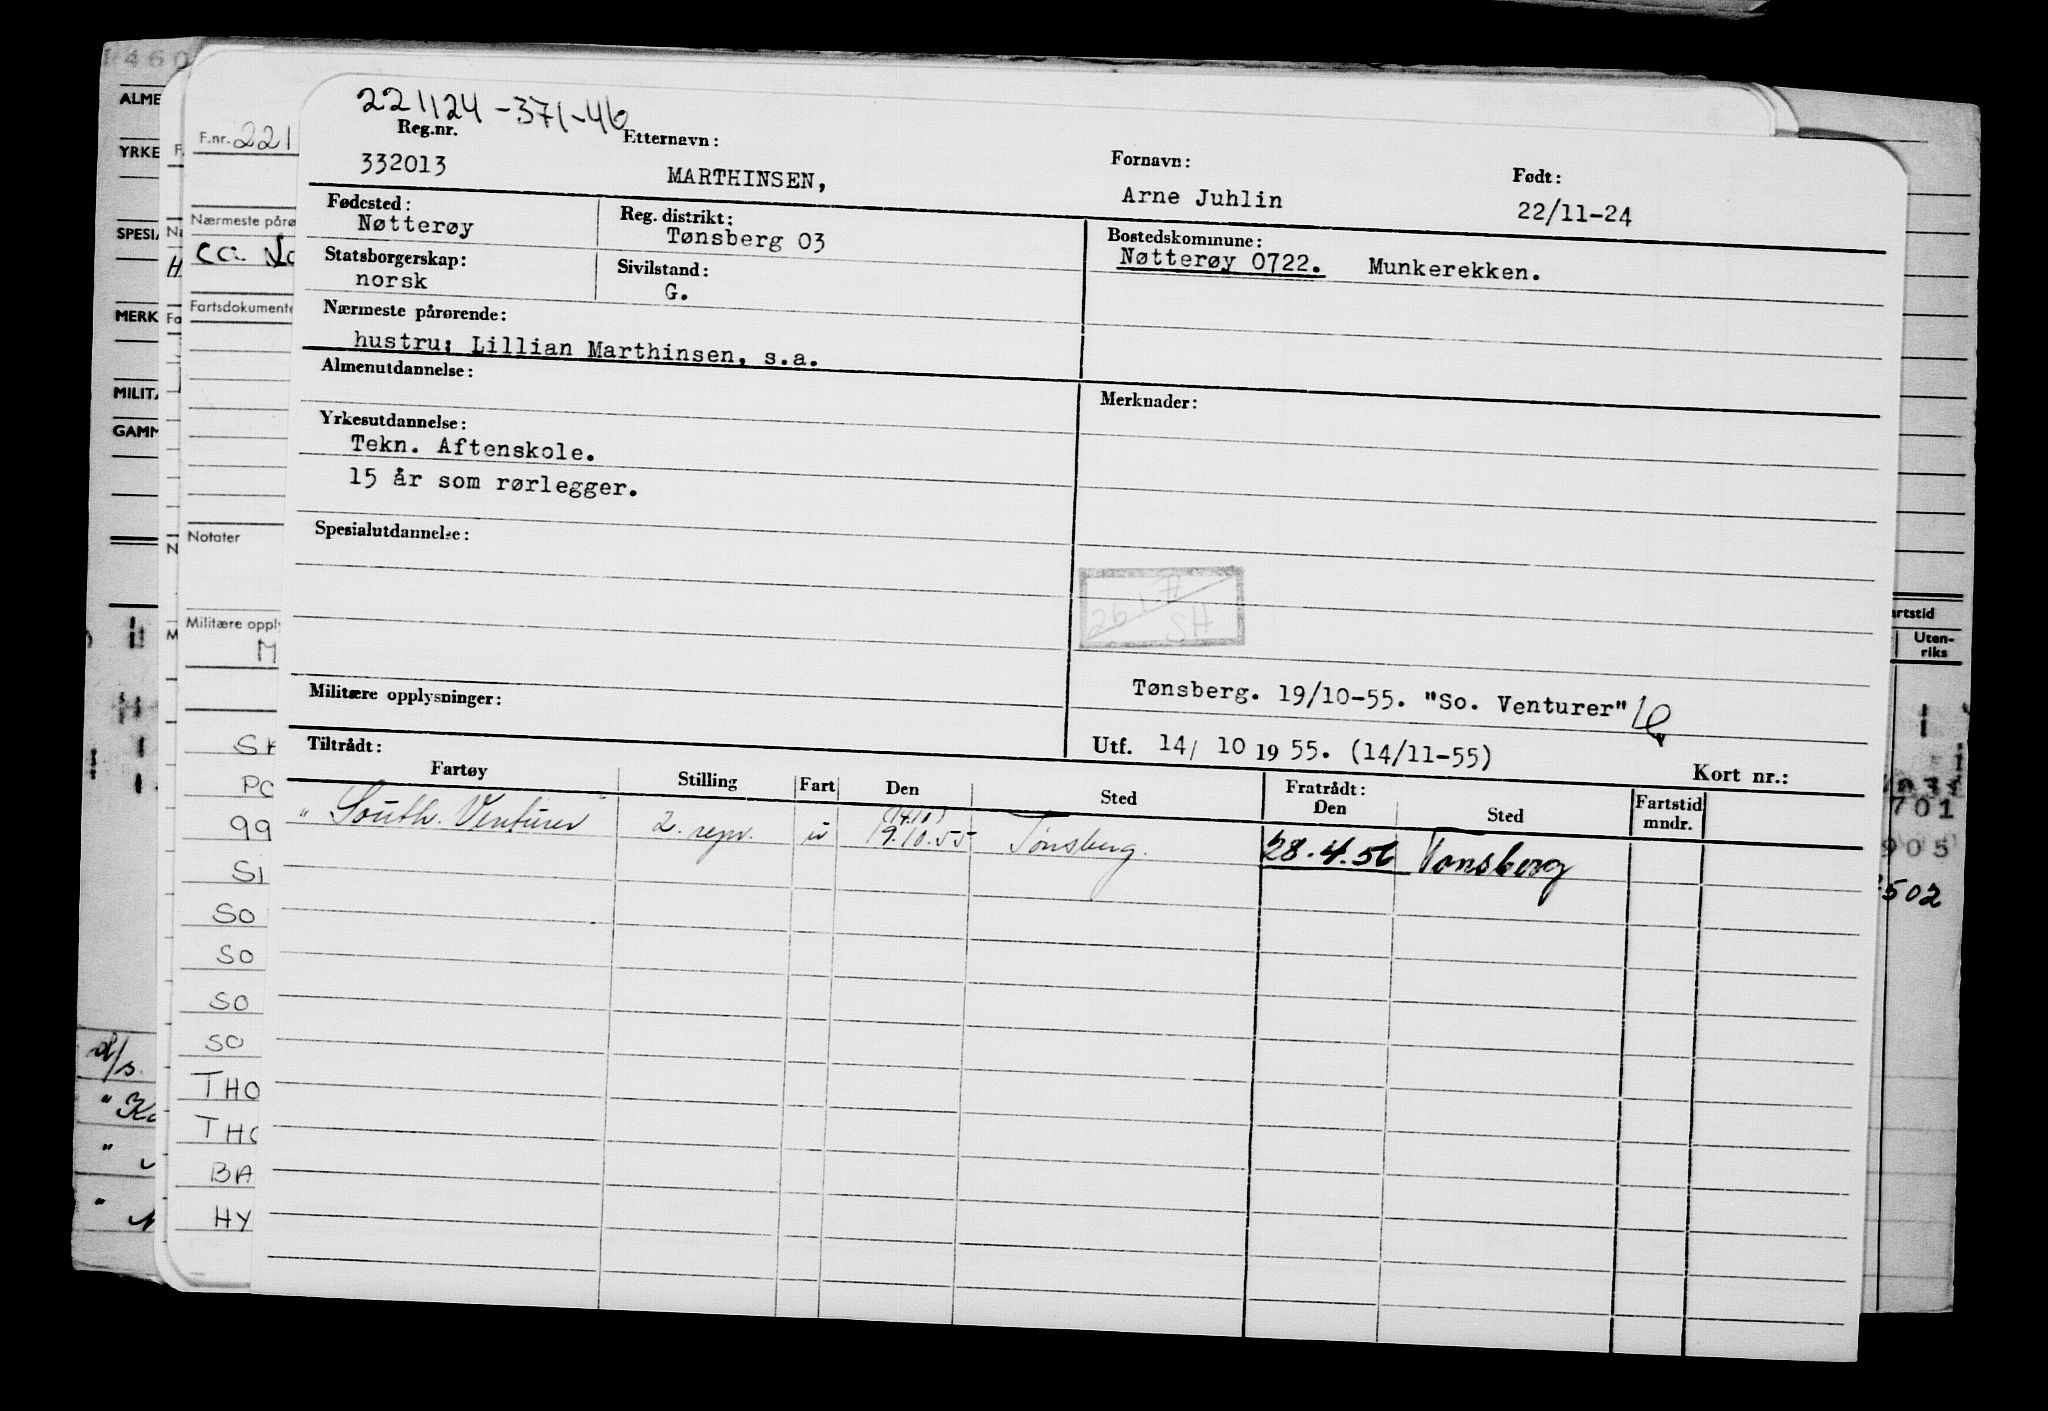 221124-371-46
Reg.nr. Etternavn: Fornavn: Født:
332013 MARTHINSEN, Arne Juhlin 22/11-24
Fødested: Reg. distrikt: Bostedskommune:
Nøtterøy Tønsberg 03 Nøtterøy 0722. Munkerekken.
Statsborgerskap: Sivilstand:
norsk G.
Nærmeste pårørende:
hustru; Lillian Marthinsen, s.a.
Almenutdannelse: Merknader:
Yrkesutdannelse:
Tekn. Aftenskole.
15 år som rørlegger.
Spesialutdannelse:
SH
Militære opplysninger: Tønsberg. 19/10-55. "So. Venturer"
Tiltrådt: Utf. 14/ 10 1955. (14/11-55)
Kort nr.:
Fartøy Stilling Fart Den Sted Fratrådt: Den Sted Fartstid mndr.
(14.10)
"South. Venturer" 2. repr. u 19.10.55 Tønsberg. 28.4.56 Tønsberg
1460
ALME
YRKE
SPESIA
MERK
MILITA
GAMM
F.nr. 221
Nærmeste pårø
Fartsdokumente
Notater
Militære opply
M
SK
PO
99
SI
SO
SO
SO
SO
THO
THO
BA
HY
d/s.
artstid
Uten-
riks
701
905
502